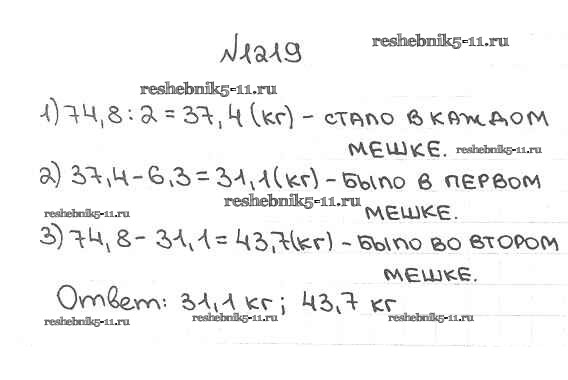 N1219
reshebnik5-11.ru
reshebnik5-11.ru
1) 74,8 : 2 = 37,4 (кг) – стало в каждом
мешке. reshebnik5-11.ru
2) 37,4 – 6,3 = 31,1 (кг) – было в первом
reshebnik5-11.ru
reshebnik5-11.ru мешке.
3) 74,8 – 31,1 = 43,7 (кг) – было во втором
мешке.
Ответ: 31,1 кг; 43,7 кг
reshebnik5-11.ru reshebnik5-11.ru reshebnik5-11.ru